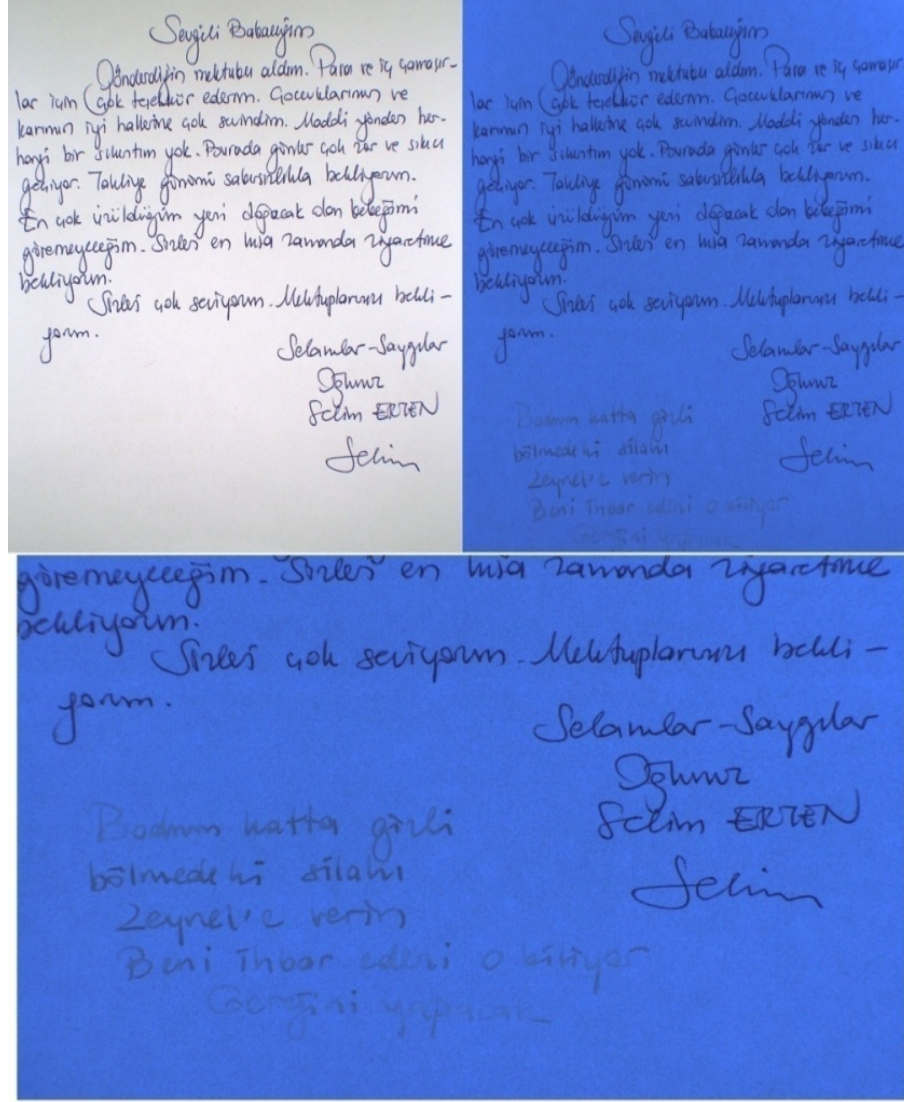 Sevgili Babacığım
Gönderdiğin mektubu aldım. Para ve iç çamaşır-
lar için çok teşekkür ederim. Çocuklarımın ve
karımın iyi hallerine çok sevindim. Maddi yönden her-
hangi bir sıkıntım yok. Burada günler çok zor ve sıkıcı
geçiyor. Tahliye günümü sabırsızlıkla bekliyorum.
En çok üzüldüğüm yeni doğacak olan bebeğimi
göremeyeceğim. Sizleri en kısa zamanda ziyaretime
bekliyorum.
Sizleri çok seviyorum. Mektuplarınızı bekli-
yorum.
Selamlar-Saygılar
Oğlunuz
Selim ERTEN
Selim
Sevgili Babacığım
Gönderdiğin mektubu aldım. Para ve iç çamaşır
lar için çok teşekkür ederim. Çocuklarımın ve
karımın iyi hallerine çok sevindim. Maddi yönden her-
hangi bir sıkıntım yok. Burada günler çok zor ve sıkıcı
geçiyor. Tahliye günümü sabırsızlıkla bekliyorum.
En çok üzüldüğüm yeni doğacak olan bebeğimi
göremeyeceğim. Sizleri en kısa zamanda ziyaretime
bekliyorum.
Sizleri çok seviyorum. Mektuplarınızı bekli-
yorum.
Selamlar-Saygılar
Oğlunuz
Selim ERTEN
Selim
Bodrum katta gizli
bölmedeki silahı
Zeynel'e verin
Beni ihbar edeni o biliyor
Gereğini yapacak
göremeyeceğim. Sizleri en kısa zamanda ziyaretime
bekliyorum.
Sizleri çok seviyorum. Mektuplarınızı bekli-
yorum.
Selamlar-Saygılar
Oğlunuz
Selim ERTEN
Selim
Bodrum katta gizli
bölmedeki silahı
Zeynel'e verin
Beni ihbar edeni o biliyor
Gereğini yapacak